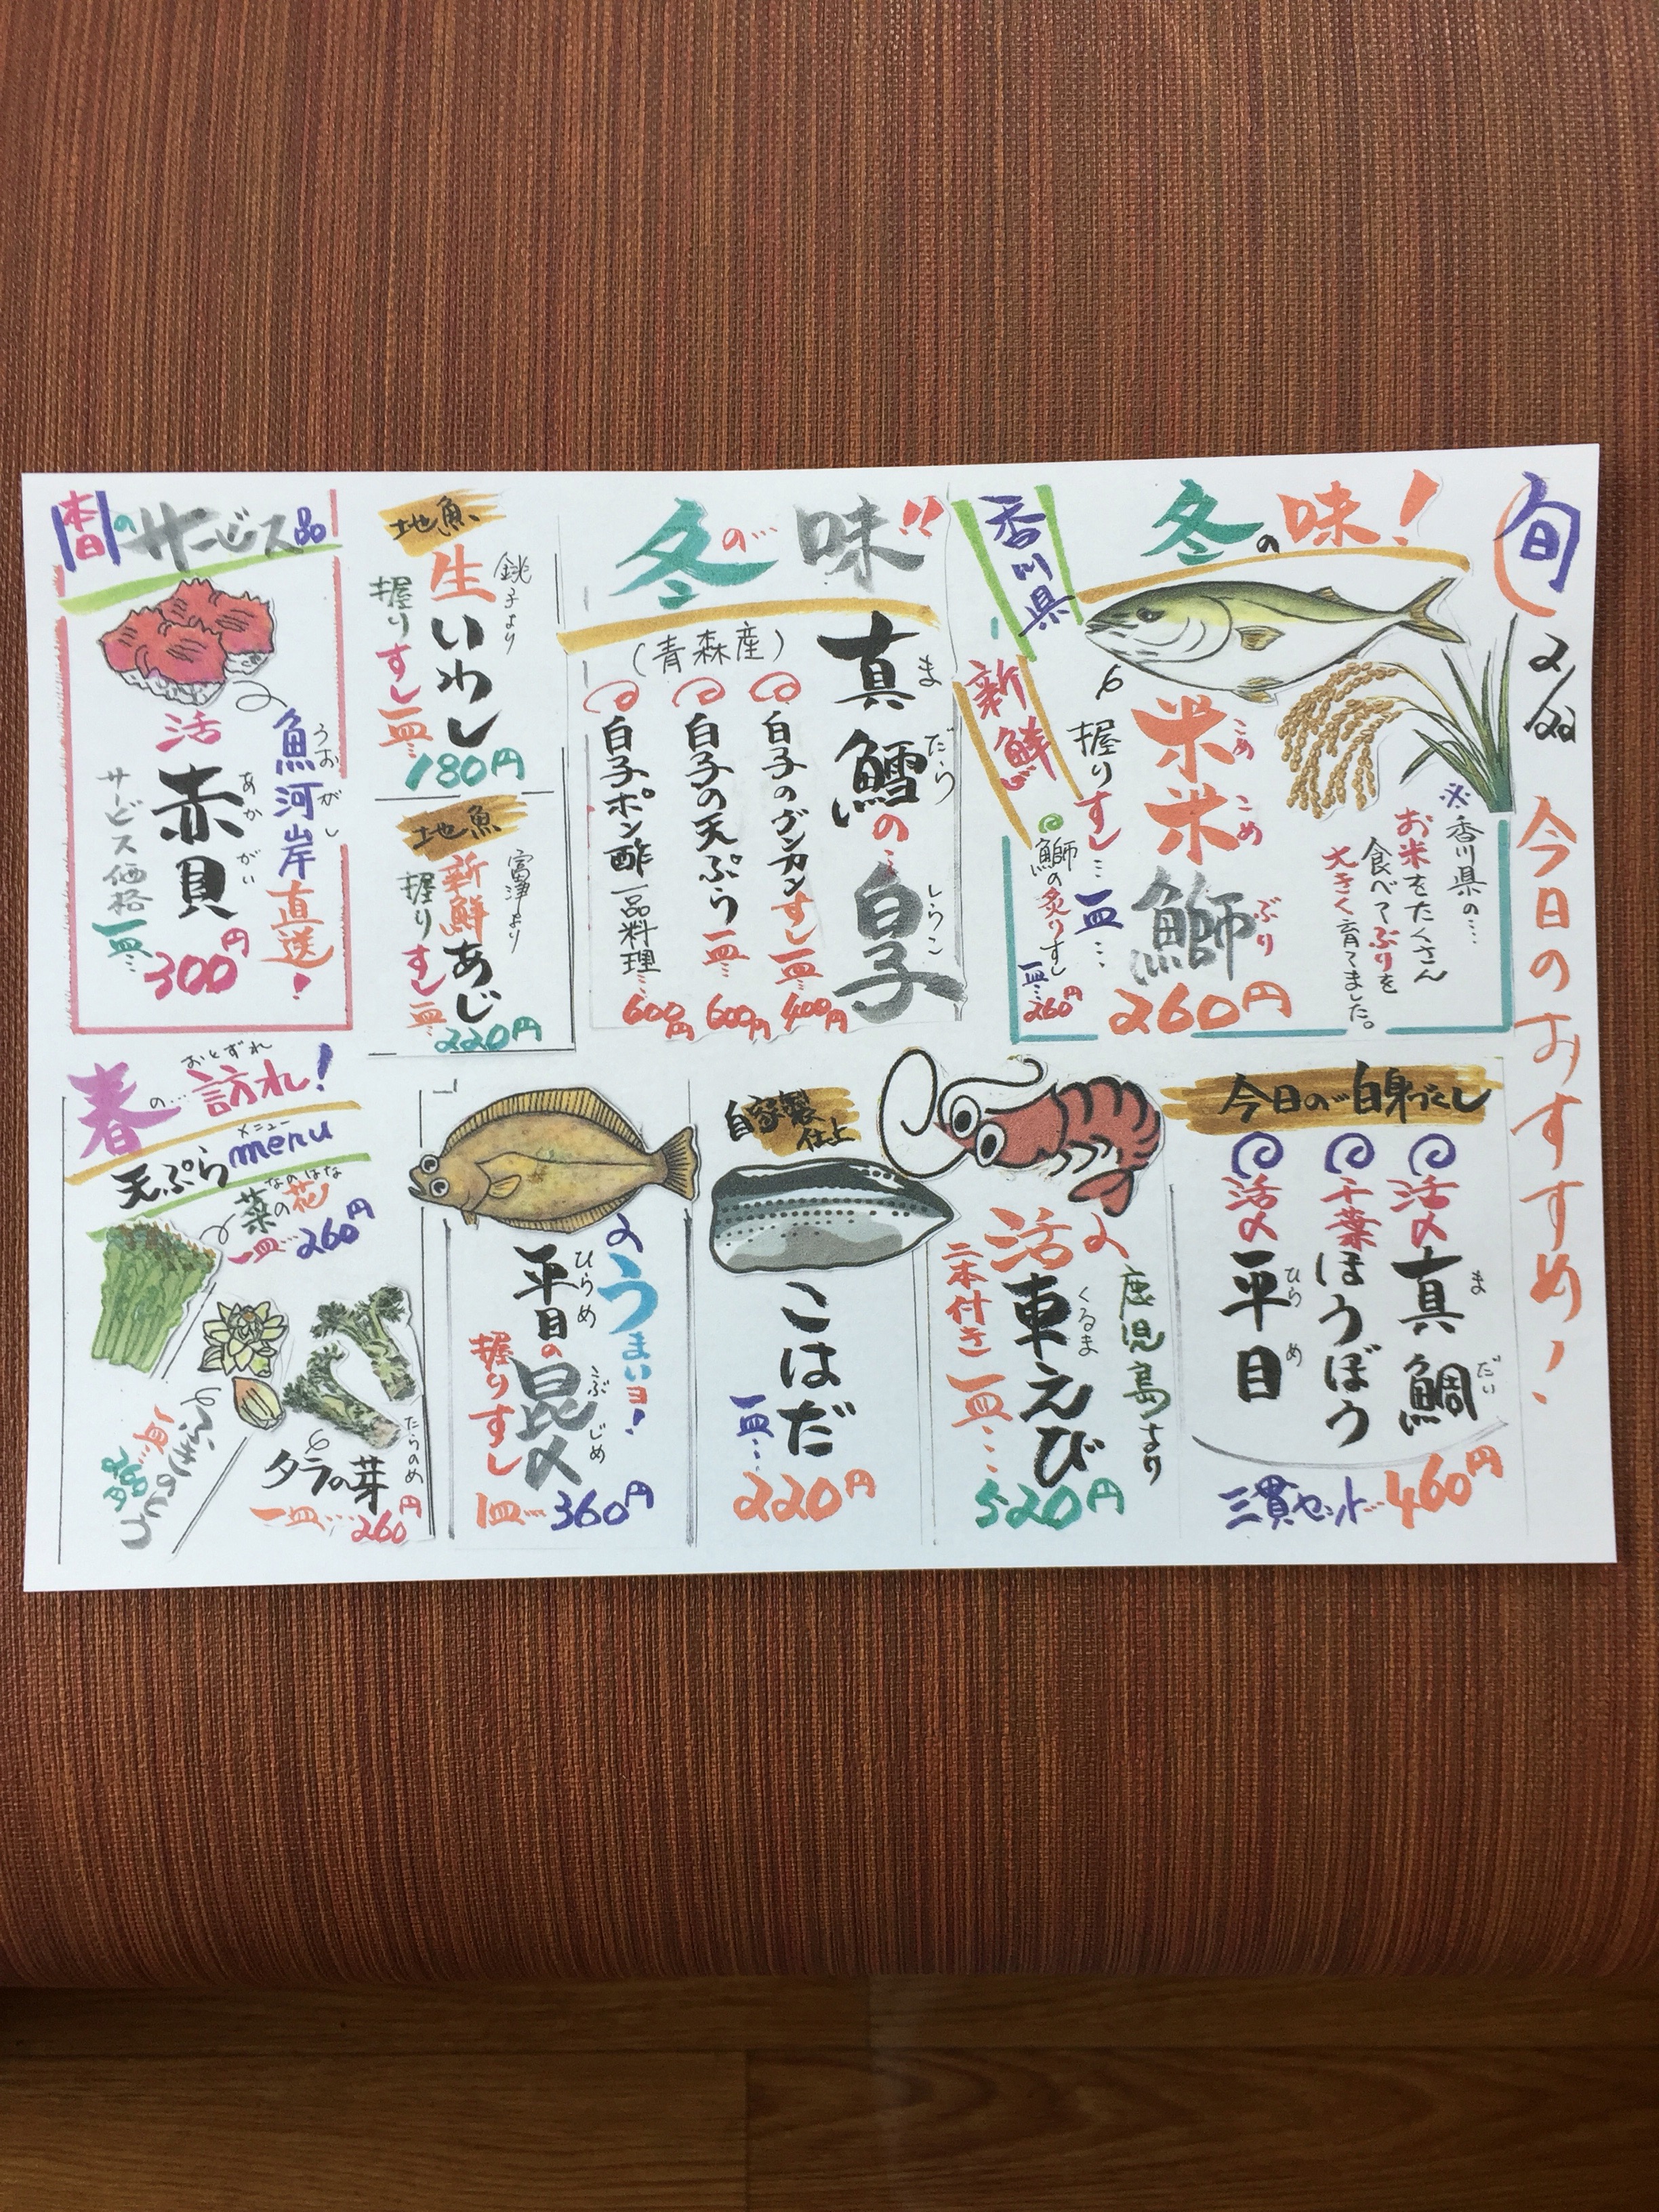 旬
今日のおすすめ!
冬の味!
香川県
新鮮
米米鰤
こめこめぶり
握りすし…一皿…
260円
鰤の炙りすし
一皿…260円
※香川県の…
お米をたくさん
食べてぶりを
大きく育てました。
冬の味!!
真鱈の…白子
まだらしらこ
(青森産)
白子のグンカンすし一皿…400円
白子の天ぷら一皿…600円
白子ポン酢一品料理…600円
地魚
銚子より
生いわし
握りすし一皿…
180円
地魚
富津より
新鮮あじ
握りすし一皿…
220円
本日のサービス品
魚河岸直送!
うおがし
活赤貝
あかがい
サービス価格
一皿…300円
今日の白身づくし
活〆真鯛
まだい
千葉ほうぼう
活〆平目
ひらめ
三貫セット…460円
鹿児島より
活車えび
くるま
二本付き一皿…
520円
自家製
仕上
こはだ
一皿…
220円
うまいヨ!
平目の昆〆
ひらめこぶじめ
握りすし
1皿…360円
春の…訪れ!
おとずれ
天ぷらmenu
メニュー
菜の花
なのはな
一皿…260円
タラの芽
たらのめ
一皿…260円
ふきのとう
一皿…